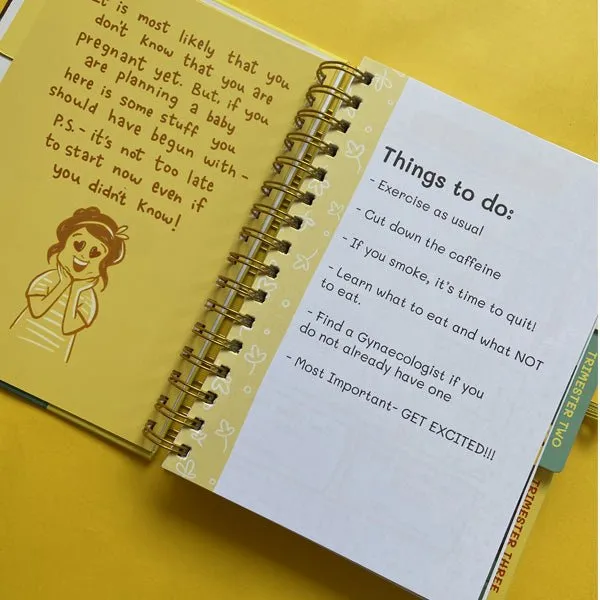 It is most likely that you
don't know that you are
pregnant yet. But, if you
are planning a baby
here is some stuff you
should have begun with -
P.S. - it's not too late
to start now even if
you didn't know!
Things to do:
- Exercise as usual
- Cut down the caffeine
- If you smoke, it's time to quit!
- Learn what to eat and what NOT
to eat.
- Find a Gynaecologist if you
do not already have one
- Most Important~ GET EXCITED!!!
TRIMESTER TWO
TRIMESTER THREE